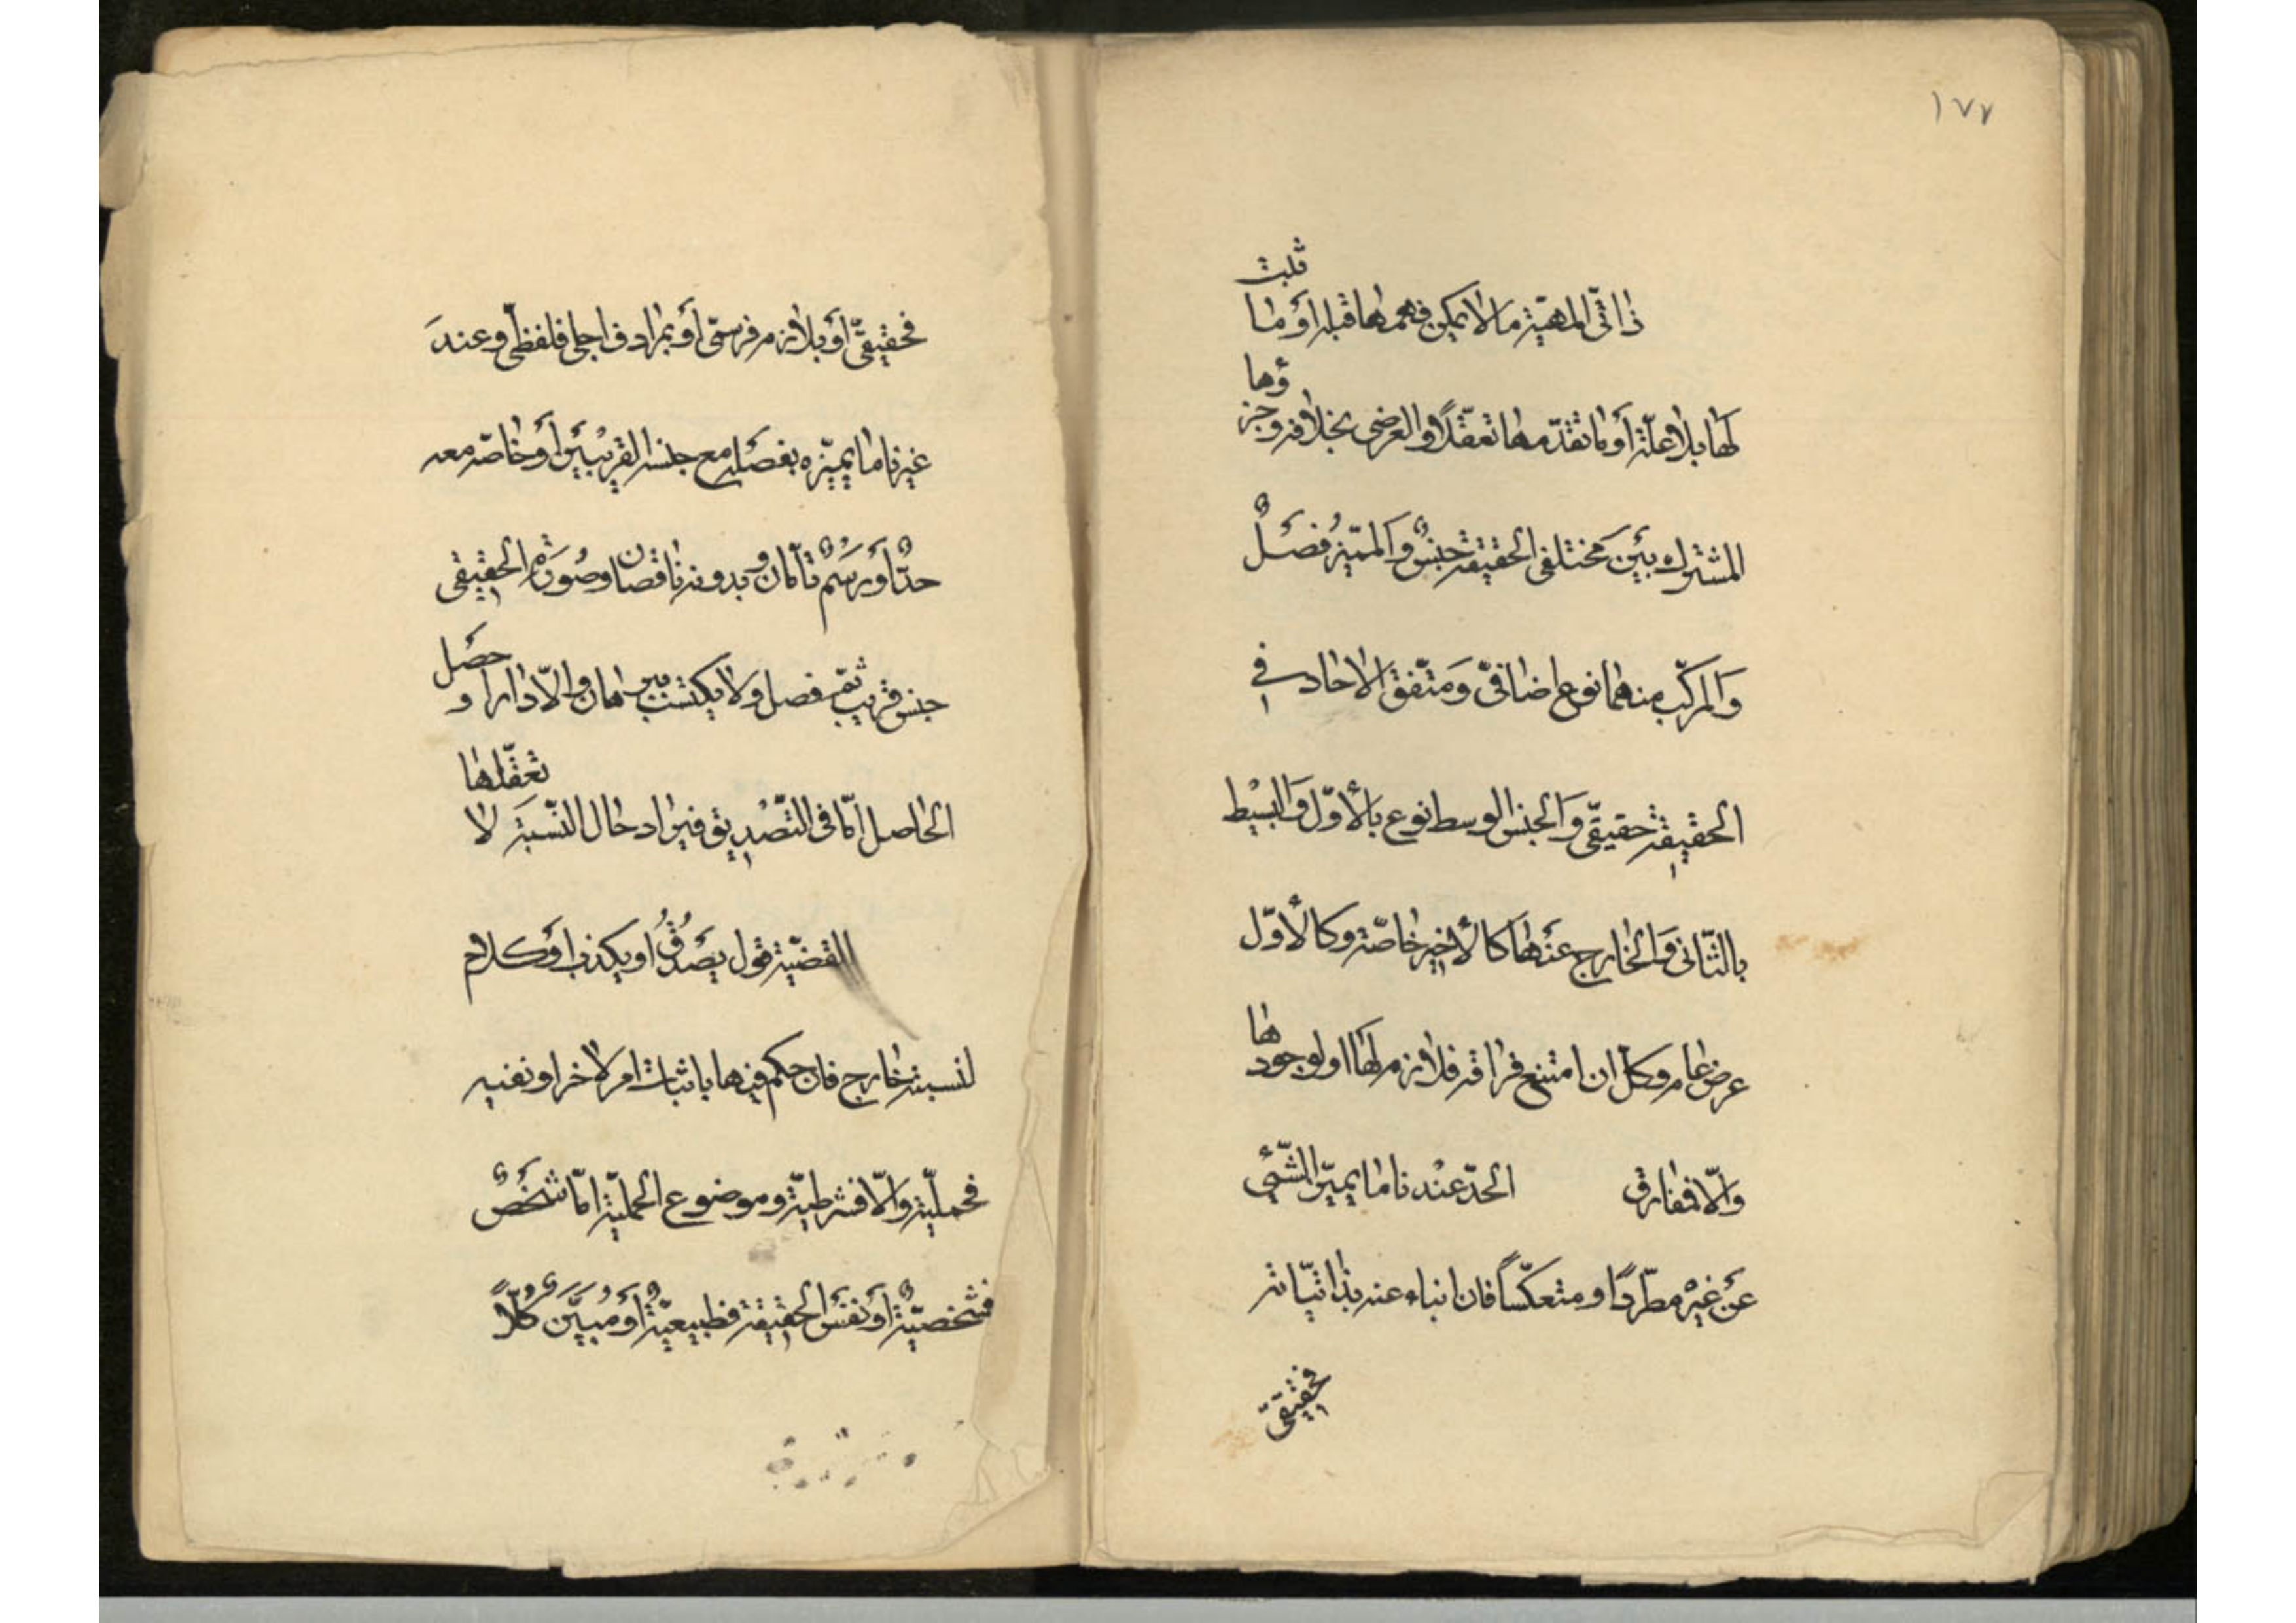 ١٧٧
ذاتيّ المهيّة ما لا يمكن فهمها قبله أو ما ثبت
لها بلا علّة أو ما تقدّمها تعقّلاً والعرضي بخلافه وجزؤها
المشترك بين مختلفي الحقيقة جنسٌ والمميّزُ فصلٌ
والمركّب منهما نوع اضافيّ ومتّفق الاحاد في
الحقيقة حقيقيّ والجنس الوسط نوع بالأوّل والبسيط
بالثّاني والخارج عنها كالأخير خاصّة وكالأوّل
عرض عام وكلّ ان امتنع فراقه فلازم لها او لوجودها
والّا فمفارق الحدّ عندنا ما يميّز الشّيئ
عن غيره مطّردًا ومنعكسًا فان انباء عنه بذاتيّاته
فحقيقيّ
فحقيقيّ أو بلازم فرسميّ أو بمرادف اجلي فلفظيّ وعند
غيرنا ما يميّزه بفصله مع جنسه القريبين أو خاصّة معه
حدٌّ أو رسمٌ تامّان وبدونه ناقصان وصورة الحقيقي
جنس قريب ثمّ فصل ولا يكتسب ببرهان والّا دار او حصل
الحاصل امّا في التّصديق فيراد حال النّسبة لا تعقّلها
القضيّة قول يصدُقُ او يكذب او كلام
لنسبته خارج فان حكم فيها باثبات امر لاخر او نفيه
فحمليّة والّا فشرطيّة وموضوع الحمليّة امّا شخصٌ
فشخصيّةٌ أو نفس الحقيقة فطبيعيّةٌ أو مُبيّن كُلًّا